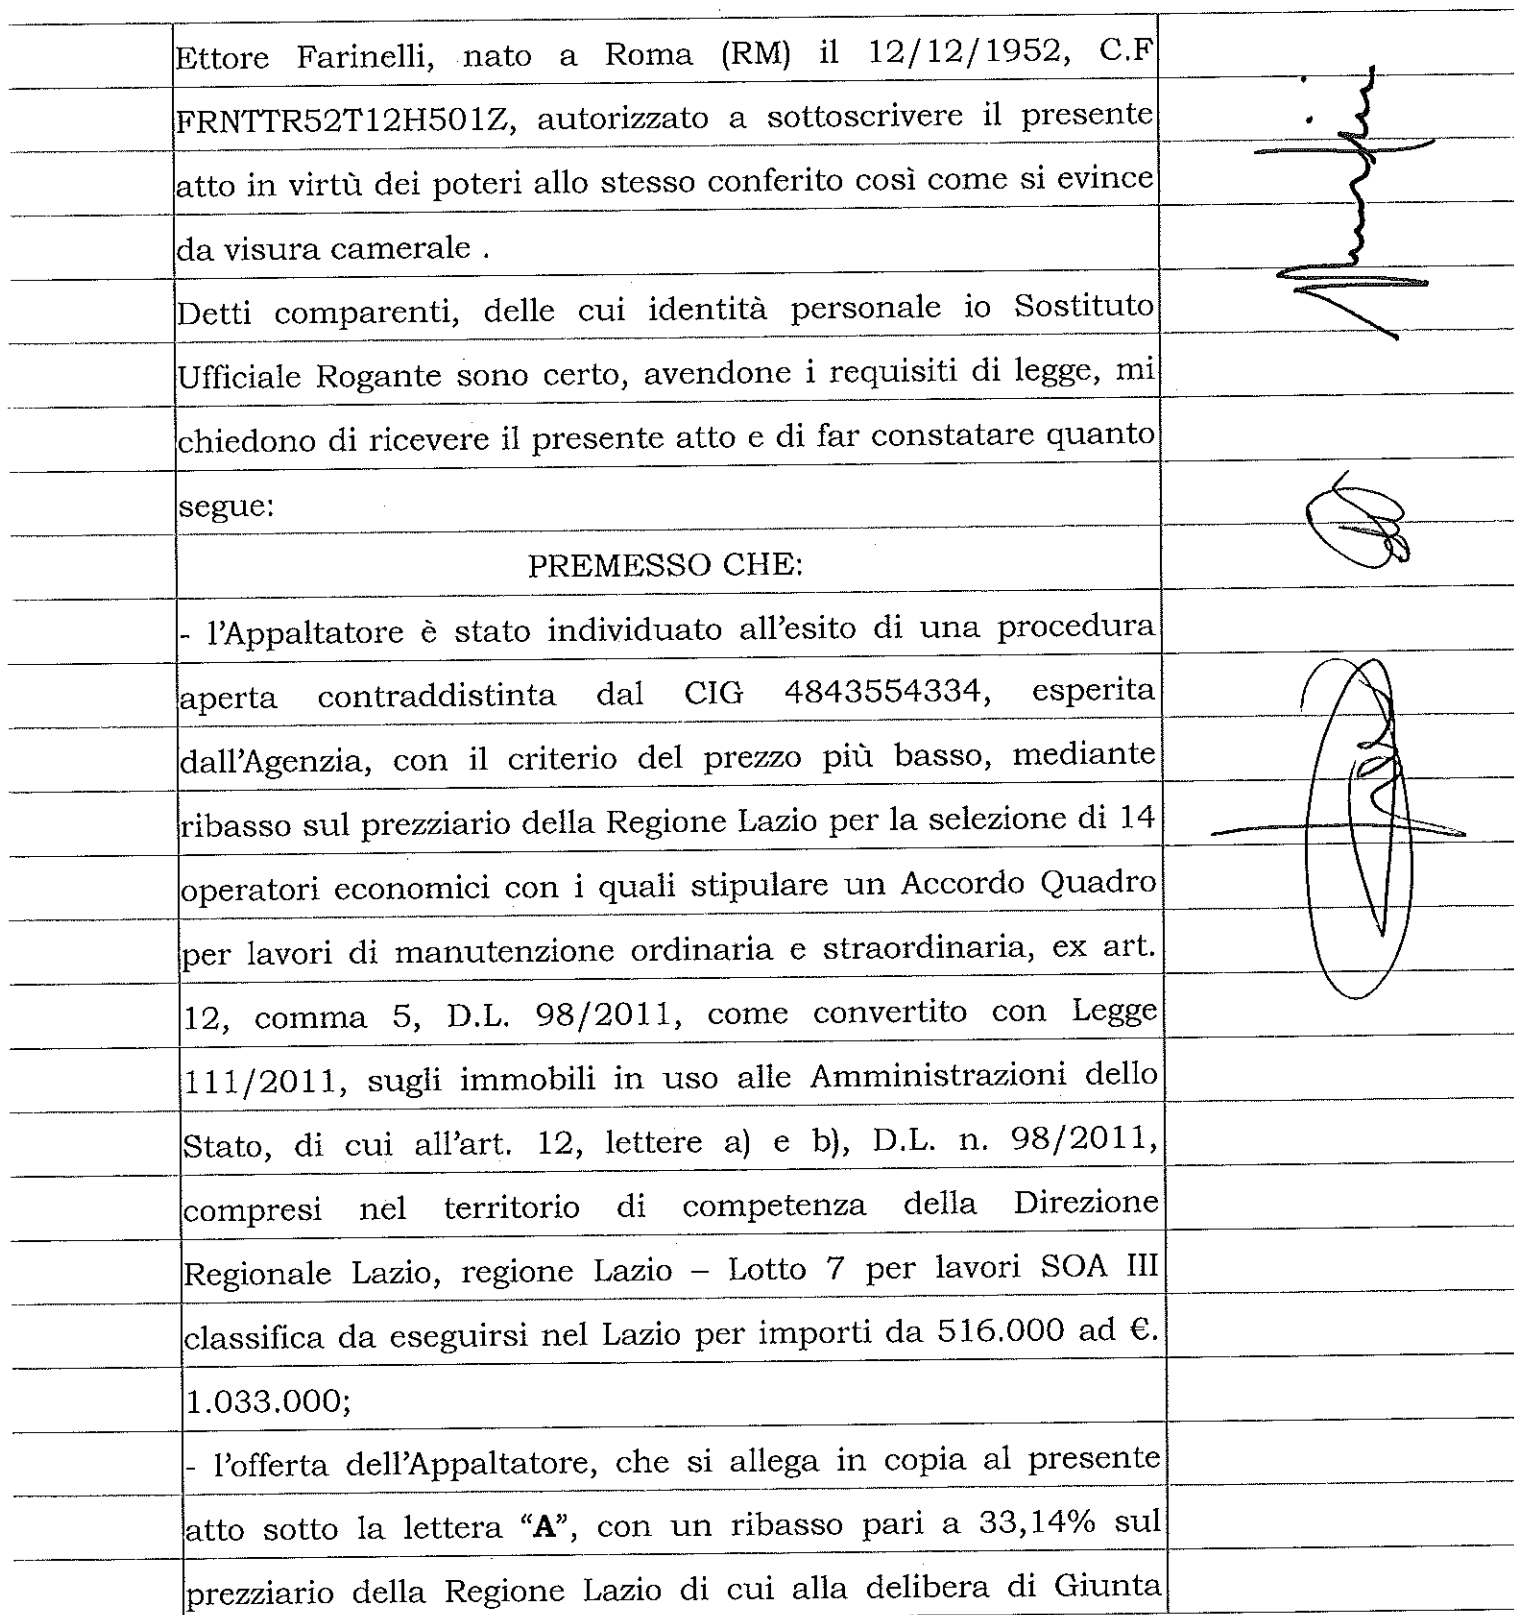 Ettore Farinelli, nato a Roma (RM) il 12/12/1952, C.F
FRNTTR52T12H501Z, autorizzato a sottoscrivere il presente
atto in virtù dei poteri allo stesso conferito così come si evince
da visura camerale .
Detti comparenti, delle cui identità personale io Sostituto
Ufficiale Rogante sono certo, avendone i requisiti di legge, mi
chiedono di ricevere il presente atto e di far constatare quanto
segue:
PREMESSO CHE:
- l'Appaltatore è stato individuato all'esito di una procedura
aperta contraddistinta dal CIG 4843554334, esperita
dall'Agenzia, con il criterio del prezzo più basso, mediante
ribasso sul prezziario della Regione Lazio per la selezione di 14
operatori economici con i quali stipulare un Accordo Quadro
per lavori di manutenzione ordinaria e straordinaria, ex art.
12, comma 5, D.L. 98/2011, come convertito con Legge
111/2011, sugli immobili in uso alle Amministrazioni dello
Stato, di cui all'art. 12, lettere a) e b), D.L. n. 98/2011,
compresi nel territorio di competenza della Direzione
Regionale Lazio, regione Lazio – Lotto 7 per lavori SOA III
classifica da eseguirsi nel Lazio per importi da 516.000 ad €.
1.033.000;
- l'offerta dell'Appaltatore, che si allega in copia al presente
atto sotto la lettera “A”, con un ribasso pari a 33,14% sul
prezziario della Regione Lazio di cui alla delibera di Giunta